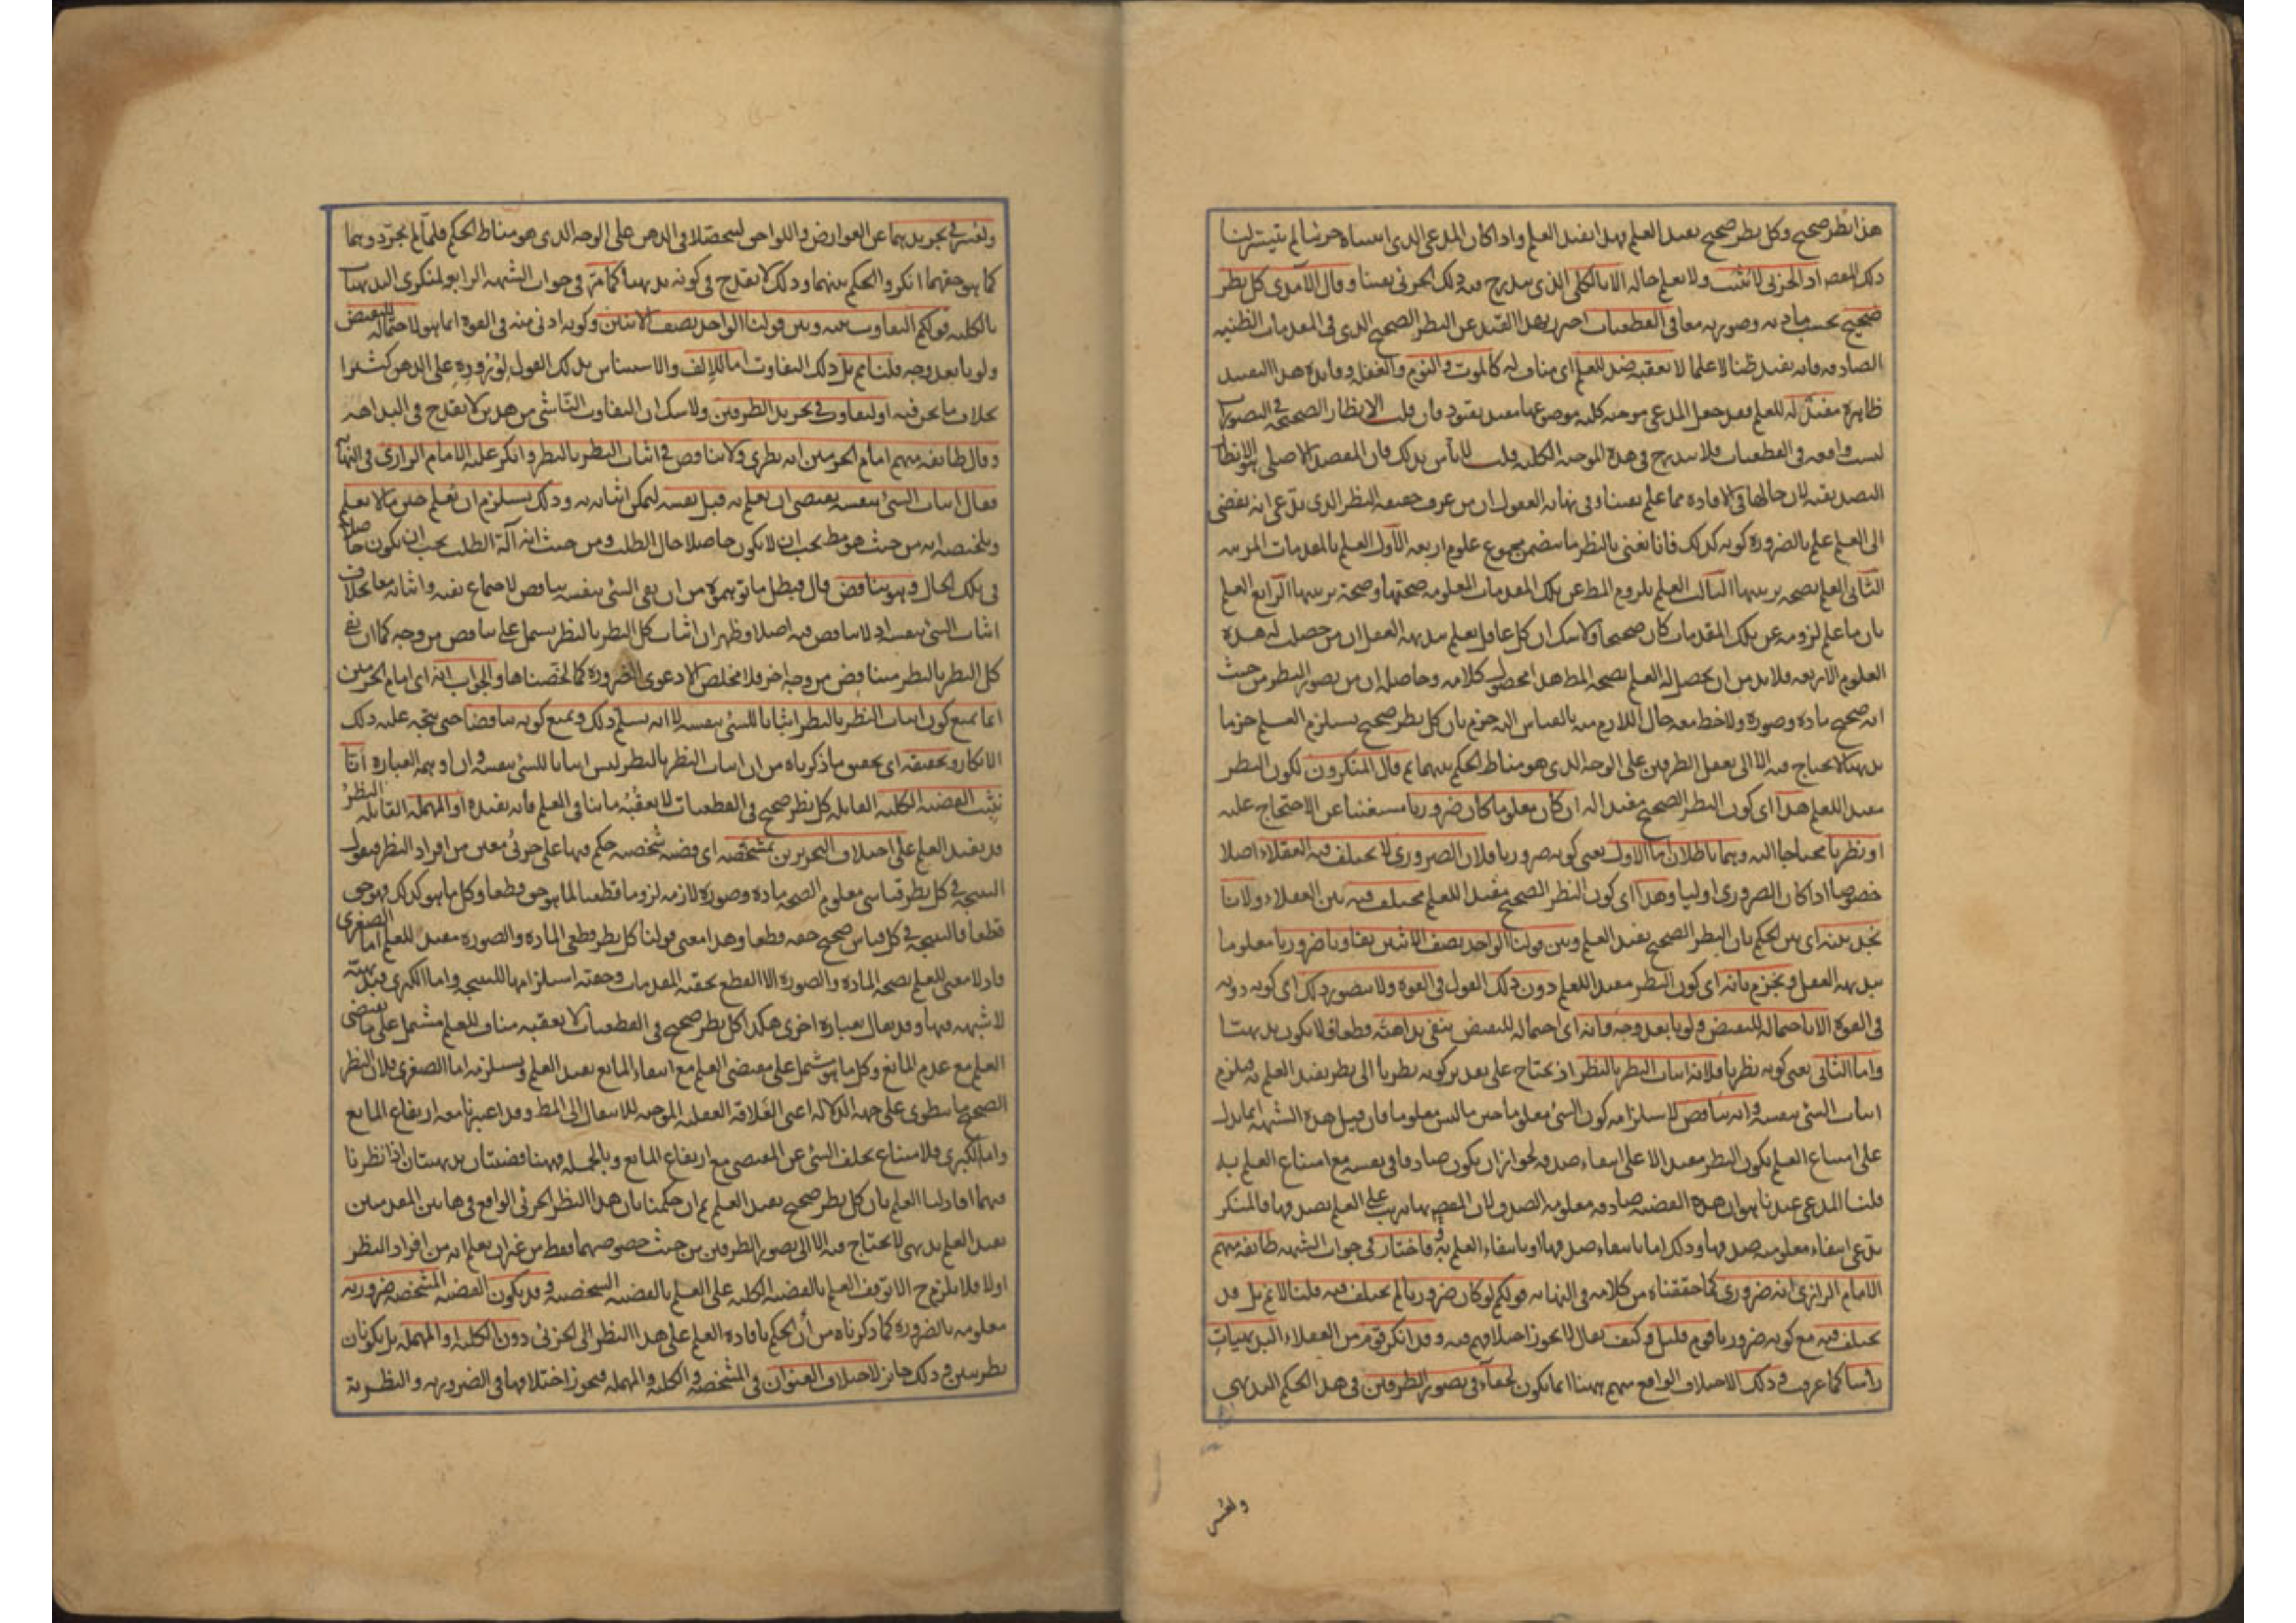 هذا نظر صحيح وكل نظر صحيح يفيد العلم فهذا يفيد العلم واذا كان المدعى الذى اثبتناه جزئيا لم يتيسر لنا
ذلك المقصود اذ الجزئى لا يثبت ولا يعلم حاله الا بالكلى الذى يندرج فيه ذلك الجزئى يقينا وقال الآمدى كل نظر
صحيح بحسب مادته وصورته معا فى القطعيات احترز بهذا القيد عن النظر الصحيح الذى فى المقدمات الظنيه
الصادقه فانه يفيد ظنا لا علما لا يعقبه ضد للعلم اى مناف له كالموت والنوم والغفله وفائدة هذا التقييد
ظاهرة مفيد له للعلم فقد جعل المدعى موجبه كليه موضوعها مقيد بقيود فان قلت الانظار الصحيحة فى التصورات
ليست واقعه فى القطعيات فلا تندرج فى هذه الموجبه الكليه قلت لا بأس بذلك فان المقصد الاصلى هو الانظار
التصديقيه لان حالها فى الافاده مما علم يقينا وفى نهايه العقول ان من عرف حقيقه النظر الذى ندعى انه يفضى
الى العلم علم بالضروره كونه كذلك فانا نعنى بالنظر ما يتضمن مجموع علوم اربعه الأول العلم بالمقدمات المرتبه
الثانى العلم بصحه ترتيبها الثالث العلم بلزوم المط عن تلك المقدمات المعلومه صحتها وصحة ترتيبها الرابع العلم
بان ما علم لزومه عن تلك المقدمات كان صحيحا ولا شك ان كل عاقل يعلم ببديهه العقل ان من حصلت له هذه
العلوم الاربعه فلا بد من ان يحصل له العلم بصحه المط هذا محصول كلامه وحاصله ان من تصور النظر من حيث
انه صحيح مادة وصورة ولاحظ معه حال اللازم منه بالقياس اليه جزم بان كل نظر صحيح يستلزم العلم جزما
بديهيا لا يحتاج فيه الا الى تعقل الطرفين على الوجه الذى هو مناط الحكم بينهما ثم قال المنكرون لكون النظر
مفيدا للعلم هذا اى كون النظر الصحيح مفيدا له ان كان معلوما كان ضروريا مستغنيا عن الاحتجاج عليه
او نظريا محتاجا اليه وهما باطلان اما الاول يعنى كونه ضروريا فلان الضرورى لا يختلف فيه العقلاء اصلا
خصوصا اذا كان الضرورى اوليا وهذا اى كون النظر الصحيح مفيدا للعلم مختلف فيه بين العقلاء ولانا
نجد بينه اى بين الحكم بان النظر الصحيح يفيد العلم وبين قولنا الواحد نصف الاثنين تفاوتا ضروريا معلوما
ببديهه العقل ونجزم بانه اى كون النظر مفيدا للعلم دون ذلك القول فى القوة ولا يتصور ذلك اى كونه دونه
فى القوة الا باحتماله للنقيض ولو بابعد وجه وانه اى احتماله للنقيض ينفى بداهته قطعا فلا يكون بديهيا
واما الثانى يعنى كونه نظريا فلانه اثبات النظر بالنظر اذ يحتاج على تقدير كونه نظريا الى نظر يفيد العلم به فيلزم
اثبات الشئ بنفسه وانه تناقض لاستلزامه كون الشئ معلوما حين ما ليس معلوما فان قيل هذه الشبهه انما تدل
على امتناع العلم بكون النظر مفيدا لا على انتفاء صدقه لجواز ان يكون صادقا فى نفسه مع امتناع العلم به
قلنا المدعى عندنا هو ان هذه القضيه صادقه معلومه الصدق لان المقصود بها يترتب على العلم بصدقها فالمنكر
يدعى انتفاء معلوميه صدقها وذلك اما بانتفاء صدقها او بانتفاء العلم به فاختار فى جواب الشبهه طائفه منهم
الامام الرازى انه ضرورى كما حققناه من كلامه فى النهايه قولكم لو كان ضروريا لم يختلف فيه قلنا لا نم بل قد
يختلف فيه مع كونه ضروريا قوم قليل وكيف يقال لا يجوز اختلافهم فيه وقد انكر قوم من العقلاء البديهيات
رأسا كما عرفت وذلك الاختلاف الواقع منهم ههنا انما يكون لخفاء فى تصور الطرفين فى هذا الحكم البديهى
ولعسر
ولعسر فى تجريدهما عن العوارض واللواحق ليتحصلا فى الذهن على الوجه الذى هو مناط الحكم فلما لم يجردوهما
كما هو حقهما انكروا الحكم بينهما وذلك لا يقدح فى كونه بديهيا كما مر فى جواب الشبهه الرابعه لمنكرى البديهيات
بالكليه قولكم التفاوت بينه وبين قولنا الواحد نصف الاثنين وكونه ادنى منه فى القوة انما هو لاحتماله للنقيض
ولو بابعد وجه قلنا نم بل ذلك التفاوت اما للالف والاستيناس بذلك القول لوروده على الذهن كثيرا
بخلاف ما نحن فيه او لتفاوت فى تجريد الطرفين ولا شك ان التفاوت الناشى من هذين لا يقدح فى البداهه
وقال طائفه منهم امام الحرمين انه نظرى ولا تناقض فى اثبات النظر بالنظر وانكر عليه الامام الرازى فى النهاية
فقال اثبات الشئ بنفسه يقتضى ان يعلم به قبل نفسه ليمكن اثباته به وذلك يستلزم ان نعلم حين ما لا يعلم
وتلخيصه انه من حيث هو مط يجب ان لا يكون حاصلا حال الطلب ومن حيث انه آلة الطلب يجب ان يكون حاصلا
فى تلك الحال وهو تناقض قال فبطل ما توهموه من ان نفى الشئ بنفسه تناقض لاجتماع نفيه واثباته معا بخلاف
اثبات الشئ بنفسه اذ لا تناقض فيه اصلا وظهر ان اثبات كل النظر بالنظر يشتمل على تناقض من وجه كما ان نفى
كل النظر بالنظر متناقض من وجه اخر فلا مخلص الا دعوى الضروره كما لخصناها والجواب انه اى امام الحرمين
انما يمنع كون اثبات النظر بالنظر اثباتا للشئ بنفسه لا انه يسلم ذلك ويمنع كونه تناقضا حتى يتجه عليه ذلك
الانكار وتحقيقه اى تحقيق ما ذكرناه من ان اثبات النظر بالنظر ليس اثباتا للشئ بنفسه وان اوهمه العباره انا
نثبت القضيه الكليه القائله كل نظر صحيح فى القطعيات لا يعقبه ما ينافى العلم فانه يفيده او المهمله القائله النظر
قد يفيد العلم على اختلاف التحريرين بمشخصه اى قضيه شخصيه حكم فيها على جزئى معين من افراد النظر فنقول
النتيجة فى كل نظر قياسى معلوم الصحه مادة وصورة لازمه لزوما قطعيا لما هو حق قطعا وكل ما هو كذلك فهو حق
قطعا فالنتيجه فى كل قياس صحيح حقه قطعا وهذا معنى قولنا كل نظر قطعى الماده والصوره مفيد للعلم اما الصغرى
فاذ لا معنى للعلم بصحه المادة والصورة الا القطع بحقيه المقدمات وحقيه استلزامها للنتيجه واما الكبرى فبديهية
لا شبهه فيها وقد يقال بعباره اخرى هكذا كل نظر صحيح فى القطعيات لا يعقبه مناف للعلم مشتمل على ما يقتضى
العلم مع عدم المانع وكل ما هو مشتمل على مقتضى العلم مع انتفاء المانع يفيد العلم ويستلزمه اما الصغرى فلان النظر
الصحيح ما ينطوى على جهه الدلاله اعنى العلاقه العقليه الموجبه للانتقال الى المط وقد اعتبرنا معه ارتفاع المانع
واما الكبرى فلامتناع تخلف الشئ عن المقتضى مع ارتفاع المانع وبالجمله فههنا قضيتان بديهيتان اذا نظرنا
فيهما افادتا العلم بان كل نظر صحيح يفيد العلم ثم ان حكمنا بان هذا النظر الجزئى الواقع فى هاتين المقدمتين
يفيد العلم بديهى لا يحتاج فيه الا الى تصور الطرفين من حيث خصوصهما فقط من غير ان يعلم انه من افراد النظر
اولا فلا يلزم ح الا توقف العلم بالقضيه الكليه على العلم بالقضيه الشخصيه وقد يكون القضيه المشخصه ضروريه
معلومه بالضروره كما ذكرناه من أن الحكم بافاده العلم على هذا النظر الجزئى دون الكليه او المهمله بل يكونان
نظريتين وذلك جائز لاختلاف العنوان فى المشخصه والكليه والمهمله فيجوز اختلافها فى الضروريه والنظرية